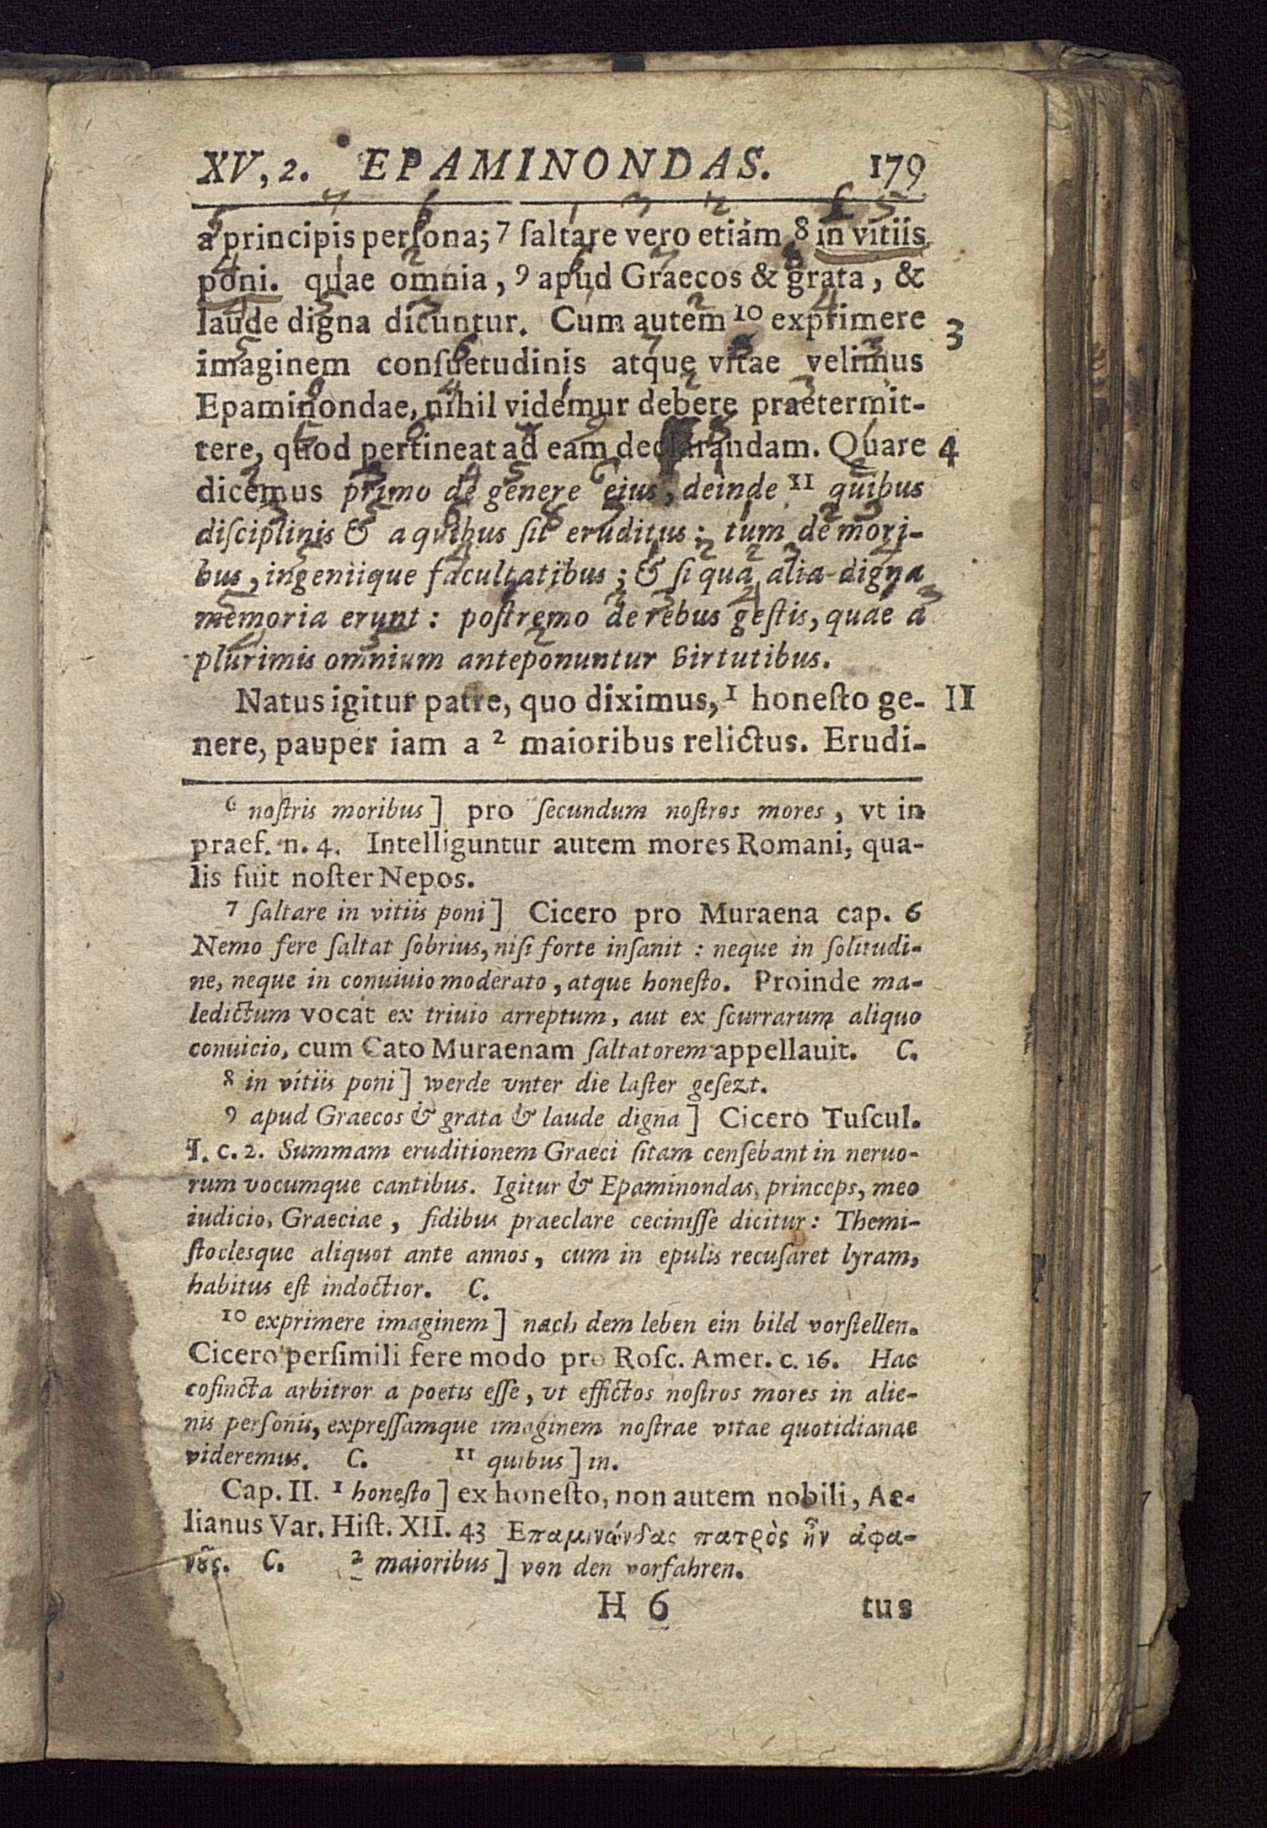 XV, 2. EPAMINONDAS. 179
a principis persona; 7 saltare vero etiam 8 in vitiis
poni. quae omnia, 9 apud Graecos & grata, &
laude digna dicuntur. Cum autem 10 exprimere 3
imaginem consuetudinis atque vitae velimus
Epaminondae, nihil videmur debere praetermit-
tere, quod pertineat ad eam declarandam. Quare 4
dicemus primo de genere eius, deinde 11 quibus
disciplinis & a quibus sit eruditus; tum de mori-
bus, ingeniique facultatibus; & si qua alia digna
memoria erunt: postremo de rebus gestis, quae a
plurimis omnium anteponuntur virtutibus.
Natus igitur patre, quo diximus, 1 honesto ge- II
nere, pauper iam a 2 maioribus relictus. Erudi-
6 nostris moribus] pro secundum nostros mores, vt in
praef. n. 4. Intelliguntur autem mores Romani, qua-
lis fuit noster Nepos.
7 saltare in vitiis poni] Cicero pro Muraena cap. 6
Nemo fere saltat sobrius, nisi forte insanit: neque in solitudi-
ne, neque in conuiuio moderato, atque honesto. Proinde ma-
ledictum vocat ex triuio arreptum, aut ex scurrarum aliquo
conuicio, cum Cato Muraenam saltatorem appellauit. C.
8 in vitiis poni] werde vnter die laster gesezt.
9 apud Graecos & grata & laude digna] Cicero Tuscul.
I. c. 2. Summam eruditionem Graeci sitam censebant in neruo-
rum vocumque cantibus. Igitur & Epaminondas, princeps, meo
iudicio, Graeciae, fidibus praeclare cecinisse dicitur: Themi-
stoclesque aliquot ante annos, cum in epulis recusaret lyram,
habitus est indoctior. C.
10 exprimere imaginem] nach dem leben ein bild vorstellen.
Cicero persimili fere modo pro Rosc. Amer. c. 16. Haec
cofincta arbitror a poetis esse, vt effictos nostros mores in alie-
nis personis, expressamque imaginem nostrae vitae quotidianae
videremus. C. 11 quibus] in.
Cap. II. 1 honesto] ex honesto, non autem nobili, Ae-
lianus Var. Hist. XII. 43 Επαμινώνδας πατρὸς ἦν ἀφα-
νοῦς. C. 2 maioribus] von den vorfahren.
H 6 tus